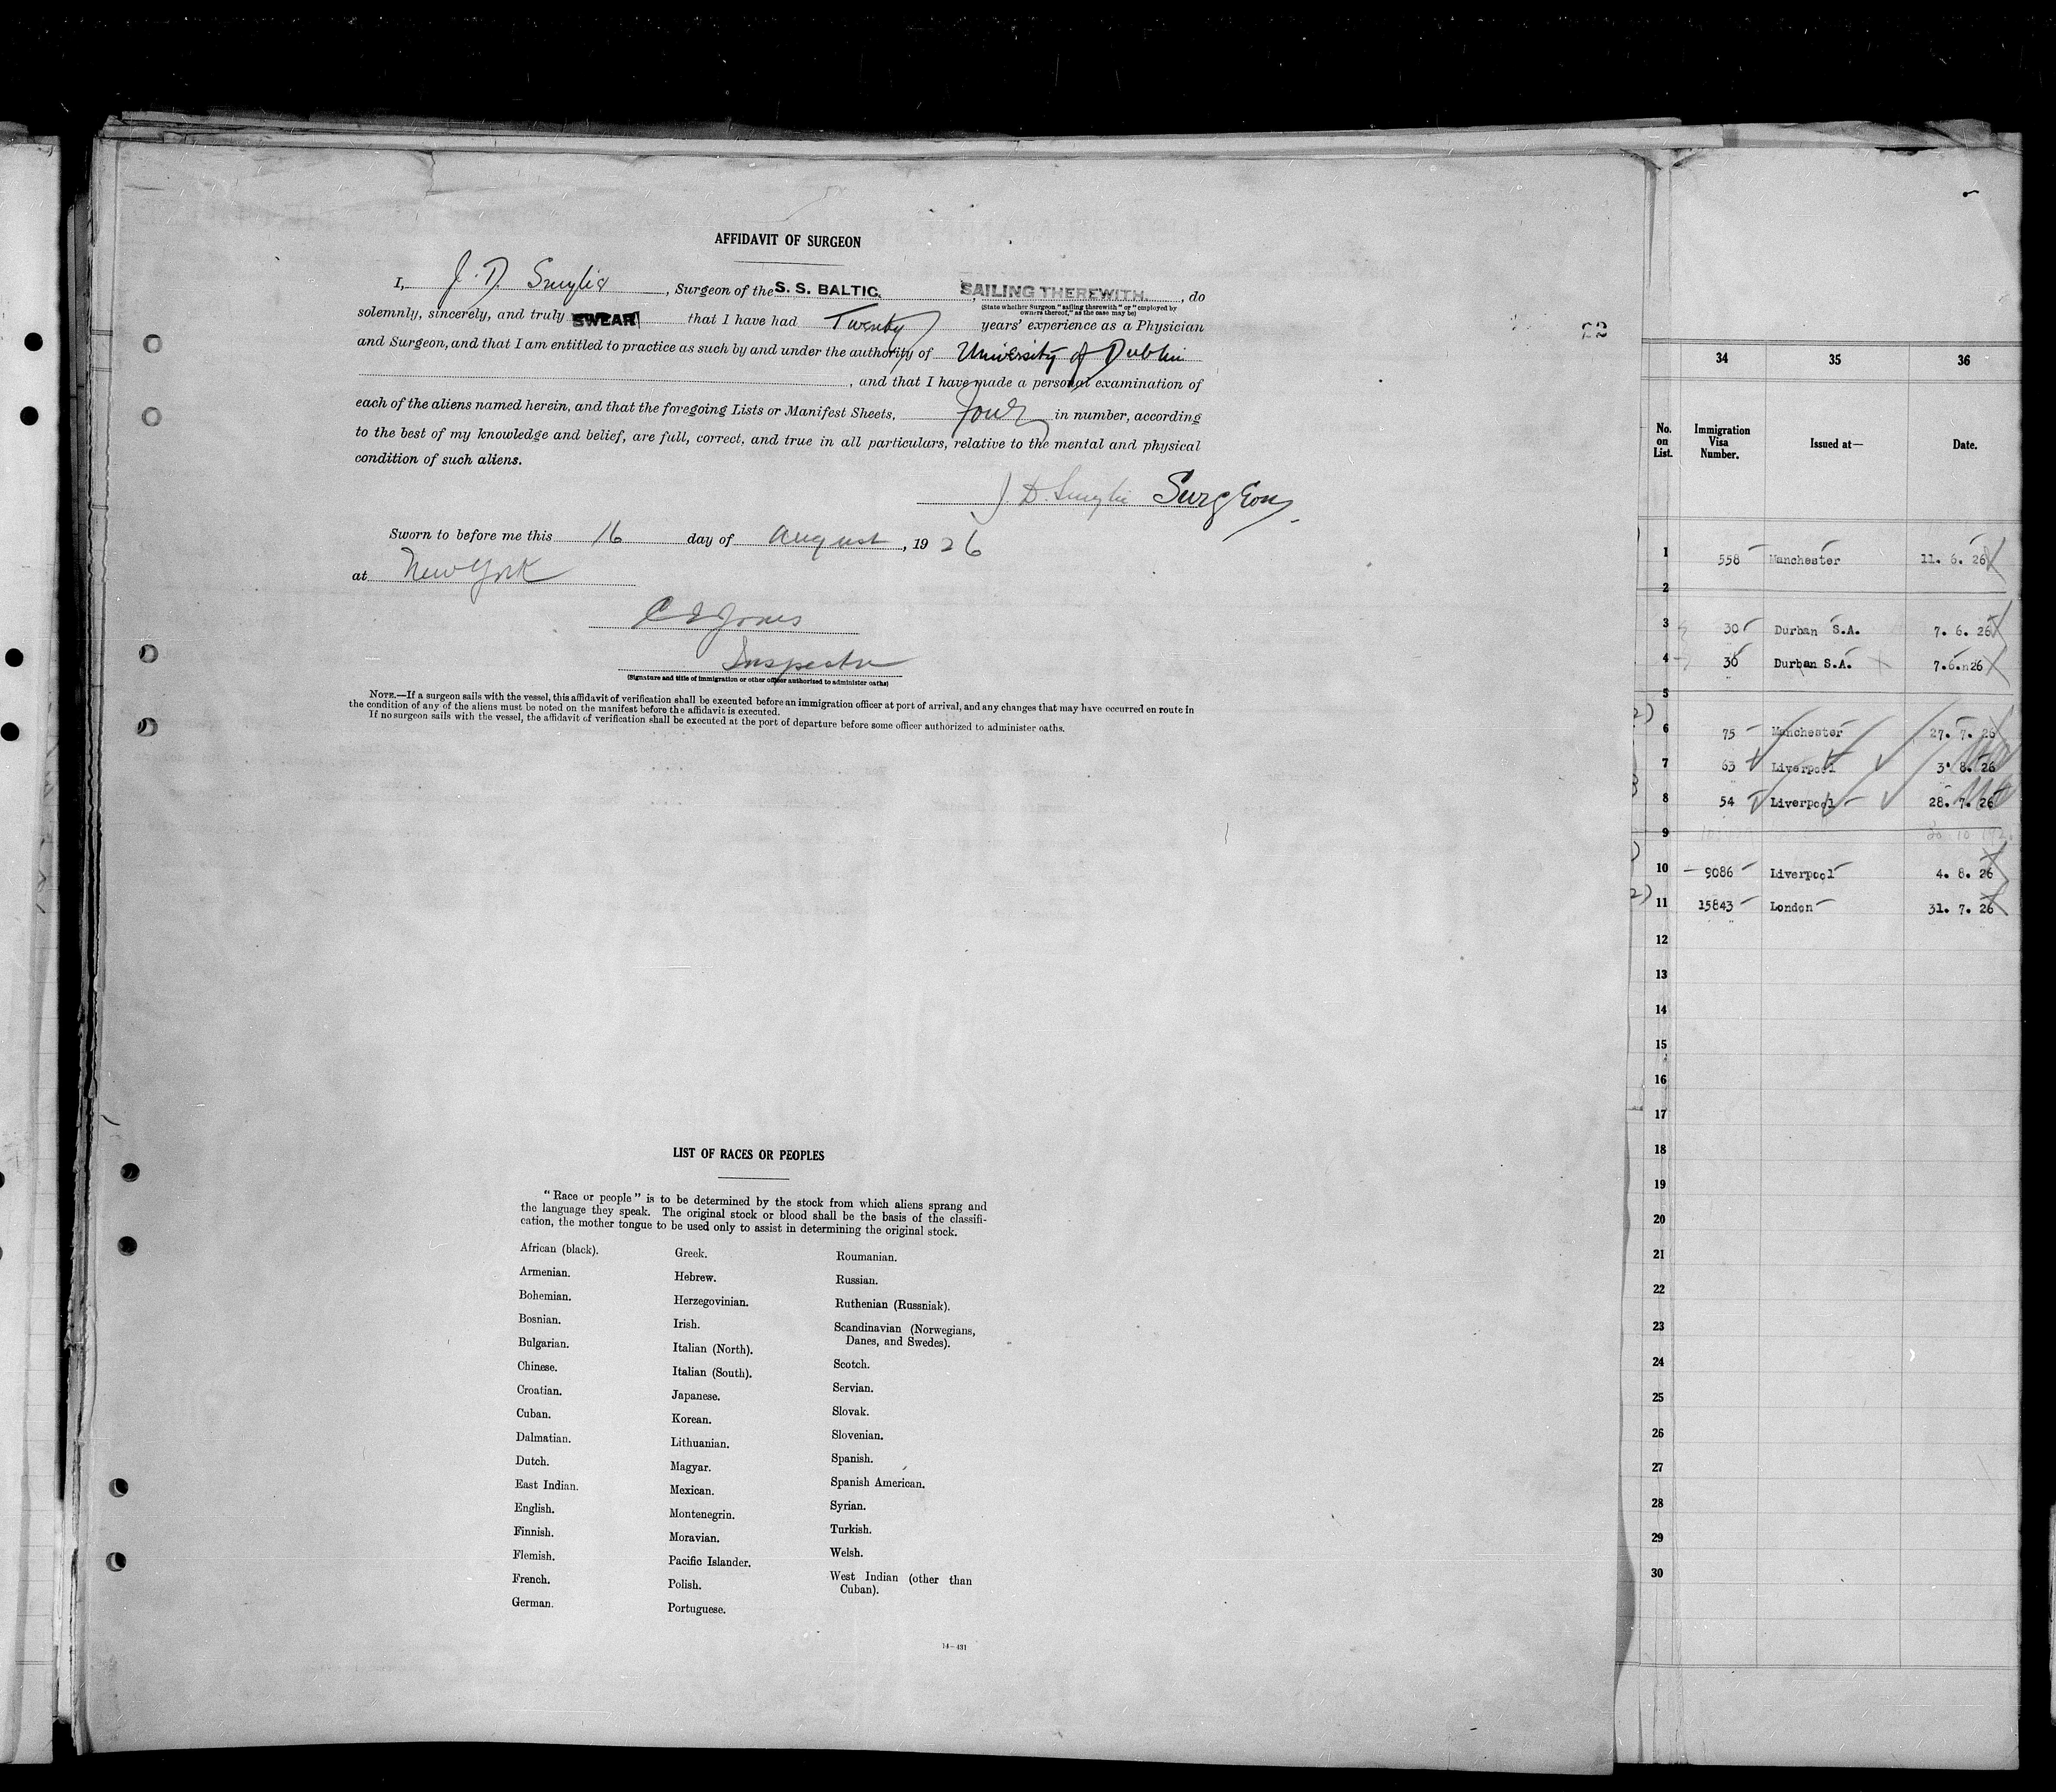 AFFIDAVIT OF SURGEON
I, J. D. Smylie, Surgeon of the S. S. BALTIC, SAILING THEREWITH, do
(State whether Surgeon "sailing therewith" or "employed by
owners thereof," as the case may be)
solemnly, sincerely, and truly SWEAR that I have had Twenty years' experience as a Physician
and Surgeon, and that I am entitled to practice as such by and under the authority of University of Dublin
, and that I have made a personal examination of
each of the aliens named herein, and that the foregoing Lists or Manifest Sheets, four in number, according
to the best of my knowledge and belief, are full, correct, and true in all particulars, relative to the mental and physical
condition of such aliens.
J. D. Smylie Surgeon
Sworn to before me this 16 day of August, 1926
at New York
C E Jones
Inspector
(Signature and title of immigration or other officer authorized to administer oaths)
NOTE.—If a surgeon sails with the vessel, this affidavit of verification shall be executed before an immigration officer at port of arrival, and any changes that may have occurred en route in
the condition of any of the aliens must be noted on the manifest before the affidavit is executed.
If no surgeon sails with the vessel, the affidavit of verification shall be executed at the port of departure before some officer authorized to administer oaths.
LIST OF RACES OR PEOPLES
"Race or people" is to be determined by the stock from which aliens sprang and
the language they speak. The original stock or blood shall be the basis of the classifi-
cation, the mother tongue to be used only to assist in determining the original stock.
African (black).
Armenian.
Bohemian.
Bosnian.
Bulgarian.
Chinese.
Croatian.
Cuban.
Dalmatian.
Dutch.
East Indian.
English.
Finnish.
Flemish.
French.
German.
Greek.
Hebrew.
Herzegovinian.
Irish.
Italian (North).
Italian (South).
Japanese.
Korean.
Lithuanian.
Magyar.
Mexican.
Montenegrin.
Moravian.
Pacific Islander.
Polish.
Portuguese.
Roumanian.
Russian.
Ruthenian (Russniak).
Scandinavian (Norwegians,
Danes, and Swedes).
Scotch.
Servian.
Slovak.
Slovenian.
Spanish.
Spanish American.
Syrian.
Turkish.
Welsh.
West Indian (other than
Cuban).
14—431
34 35 36
No. on List. Immigration Visa Number. Issued at— Date.
1 558 Manchester 11. 6. 26
2
3 30 Durban S.A. 7. 6. 26
4 30 Durban S.A. 7.6. 26
5
6 75 Manchester 27. 7. 26
7 63 Liverpool 3. 8. 26
8 54 Liverpool 28. 7. 26
9
10 9086 Liverpool 4. 8. 26
11 15843 London 31. 7. 26
12
13
14
15
16
17
18
19
20
21
22
23
24
25
26
27
28
29
30